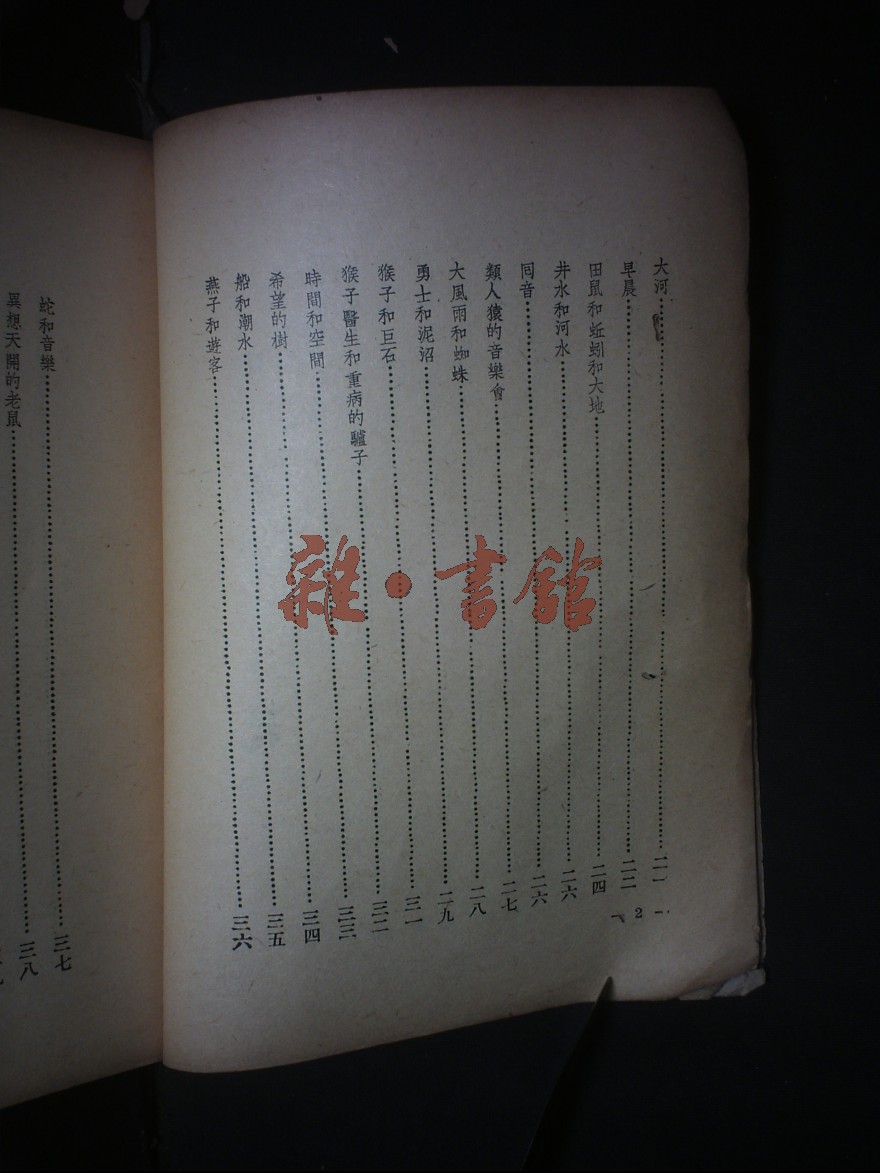 大河……二一
早晨……二二
田鼠和蚯蚓和大地……二四
井水和河水……二六
回音……二六
類人猿的音樂會……二七
大風雨和蜘蛛……二八
勇士和泥沼……二九
猴子和巨石……三一
猴子醫生和重病的驢子……三二
時間和空間……三三
希望的樹……三四
船和潮水……三五
燕子和遊客……三六
2
蛇和音樂……三七
異想天開的老鼠……三八
雜·書館